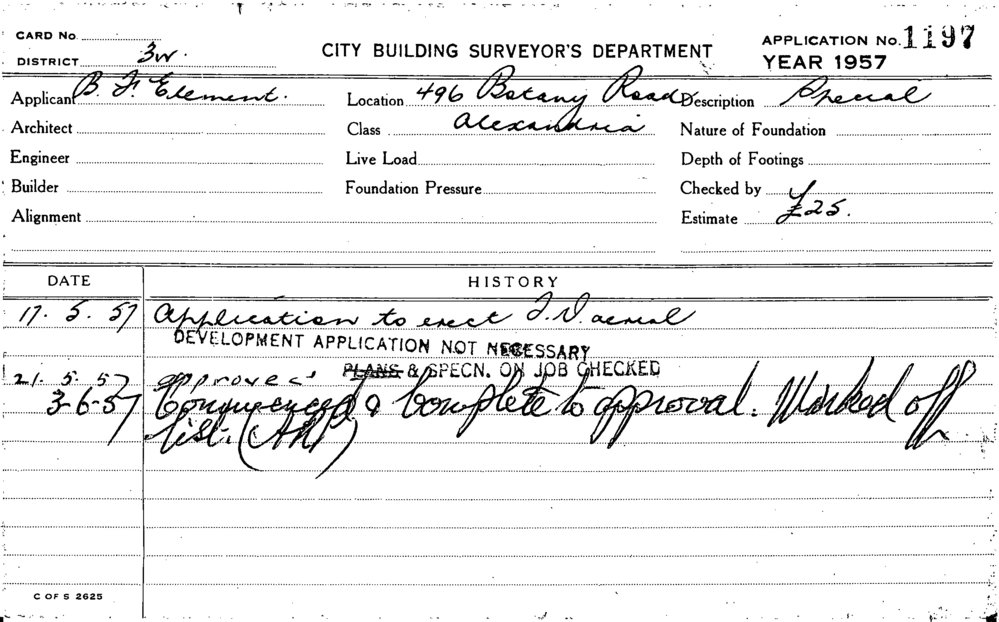 CARD No.
DISTRICT 3w.
CITY BUILDING SURVEYOR'S DEPARTMENT
APPLICATION No. 1197
YEAR 1957
Applicant B. F. Element.
Location 496 Botany Road
Description Special
Architect
Class Alexandria
Nature of Foundation
Engineer
Live Load
Depth of Footings
Builder
Foundation Pressure
Checked by
Alignment
Estimate £25.
DATE
HISTORY
17. 5. 57 Application to erect T.V. aerial
DEVELOPMENT APPLICATION NOT NECESSARY
PLANS & SPECN. ON JOB CHECKED
21. 5. 57 approved
3-6-57 Commenced & Complete to approval. Marked off
list.
C OF S 2625